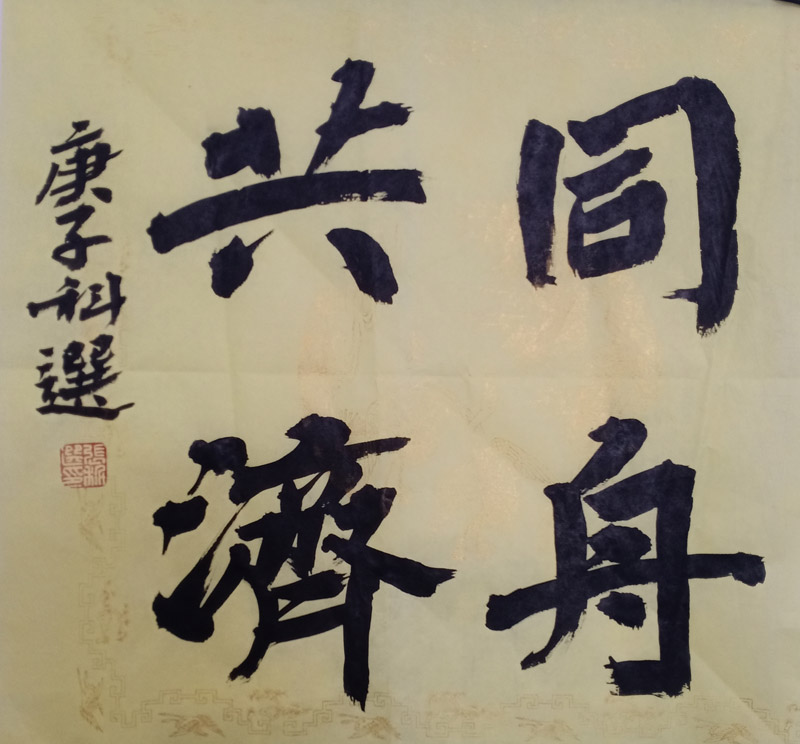 同舟
共濟
庚子科選